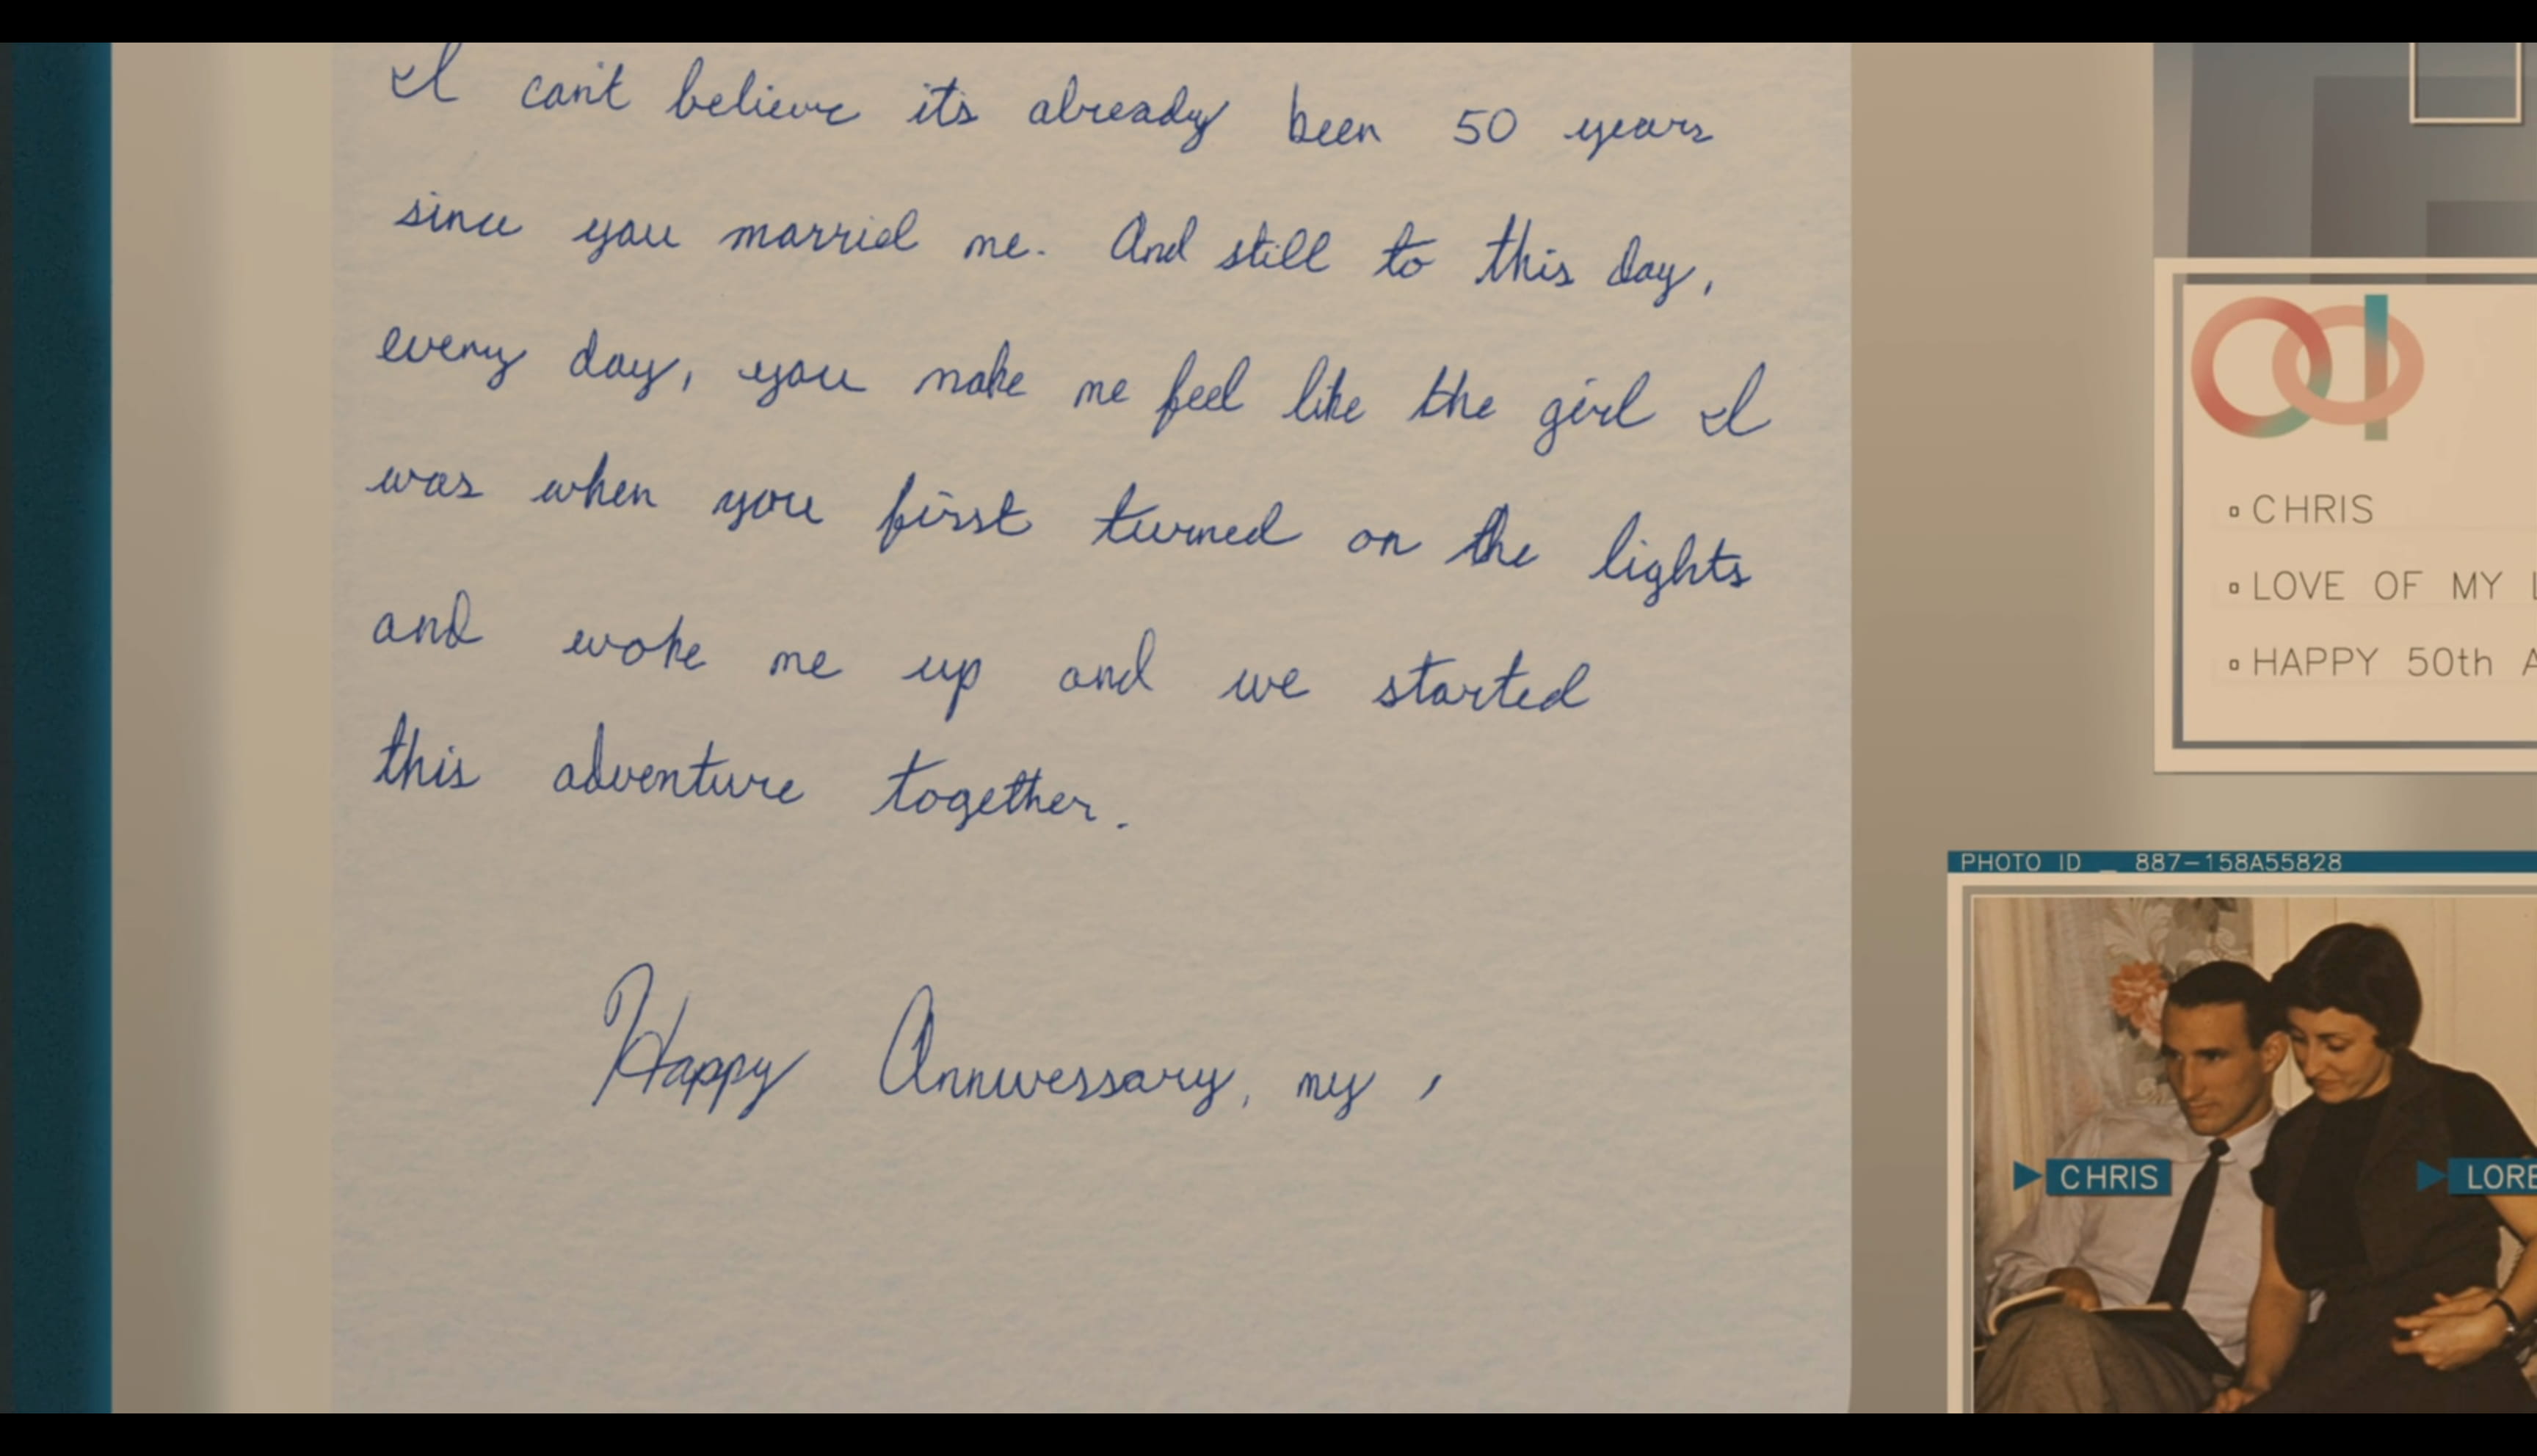 I can't believe it's already been 50 years
since you married me. And still to this day,
every day, you make me feel like the girl I
was when you first turned on the lights
and woke me up and we started
this adventure together.
Happy Anniverssary, my
CHRIS
LOVE OF MY L
HAPPY 50th A
PHOTO ID _ 887-158A55828
CHRIS
LORE